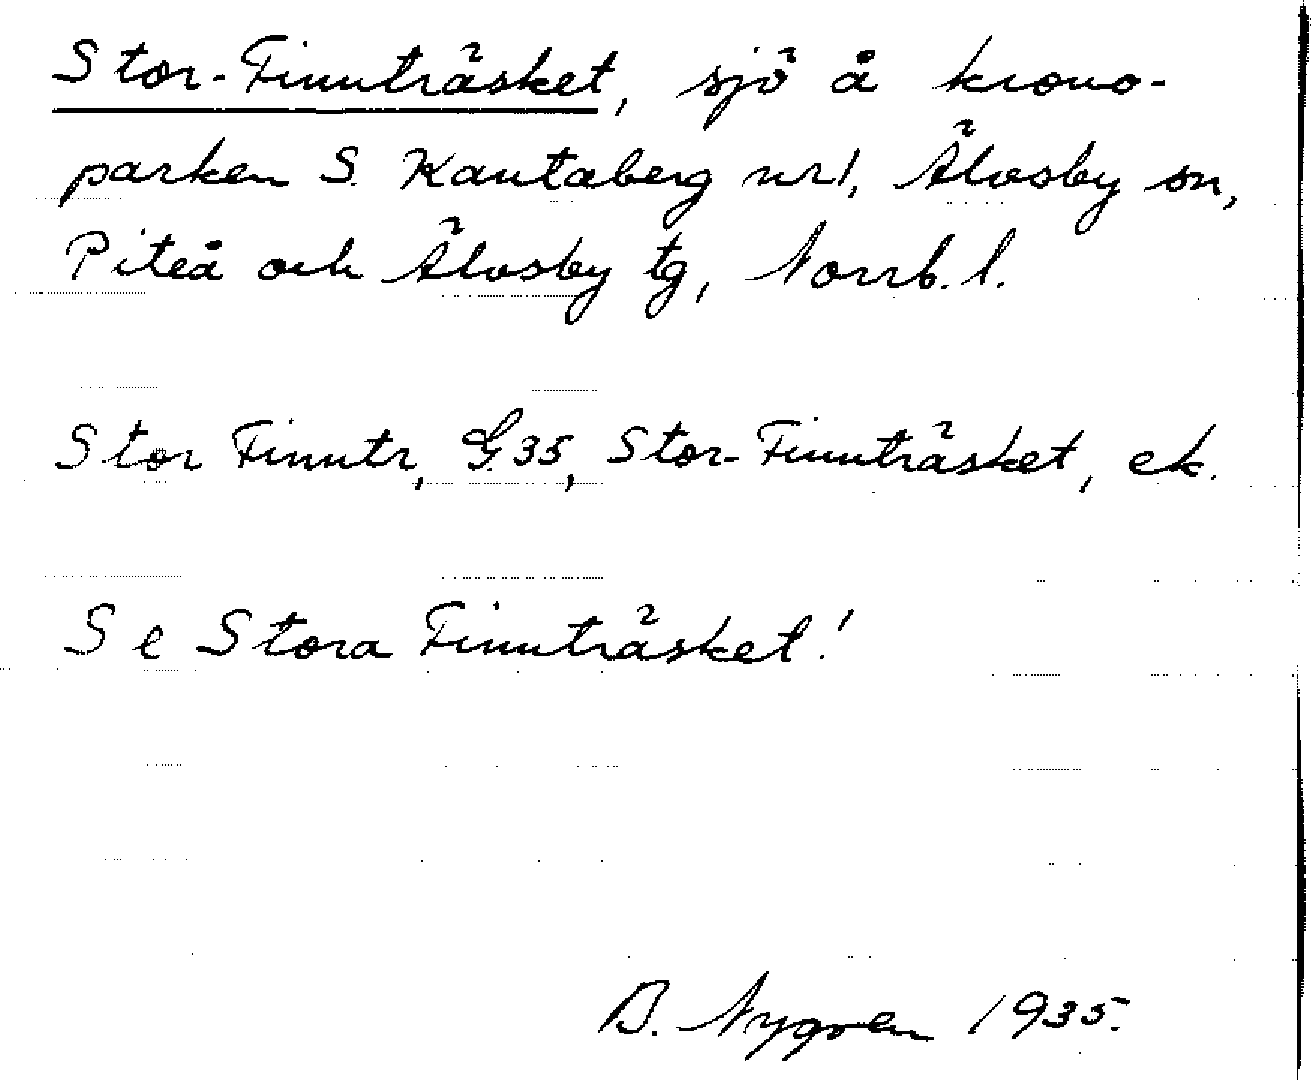 Stor-Finnträsket, sjö å krono-
parken S. Kantaberg nr1, Älvsby sn,
Piteå och Älvsby tg, Norrb. l.
Stor Finntr, G.35, Stor-Finnträsket, ek.
Se Stora Finnträsket!
B. Nygren 1935.